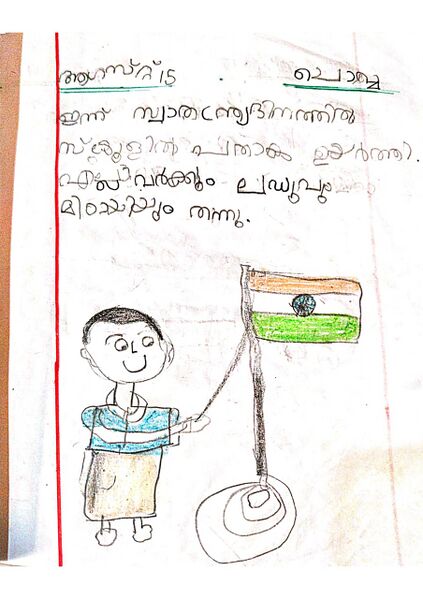 ആഗസ്റ്റ് 15 ചൊവ്വ
ഇന്ന് സ്വാതന്ത്ര്യദിനത്തിൽ
സ്കൂളിൽ പതാക ഉയർത്തി.
എല്ലാവർക്കും ലഡുവും
മിഠായിയും തന്നു.